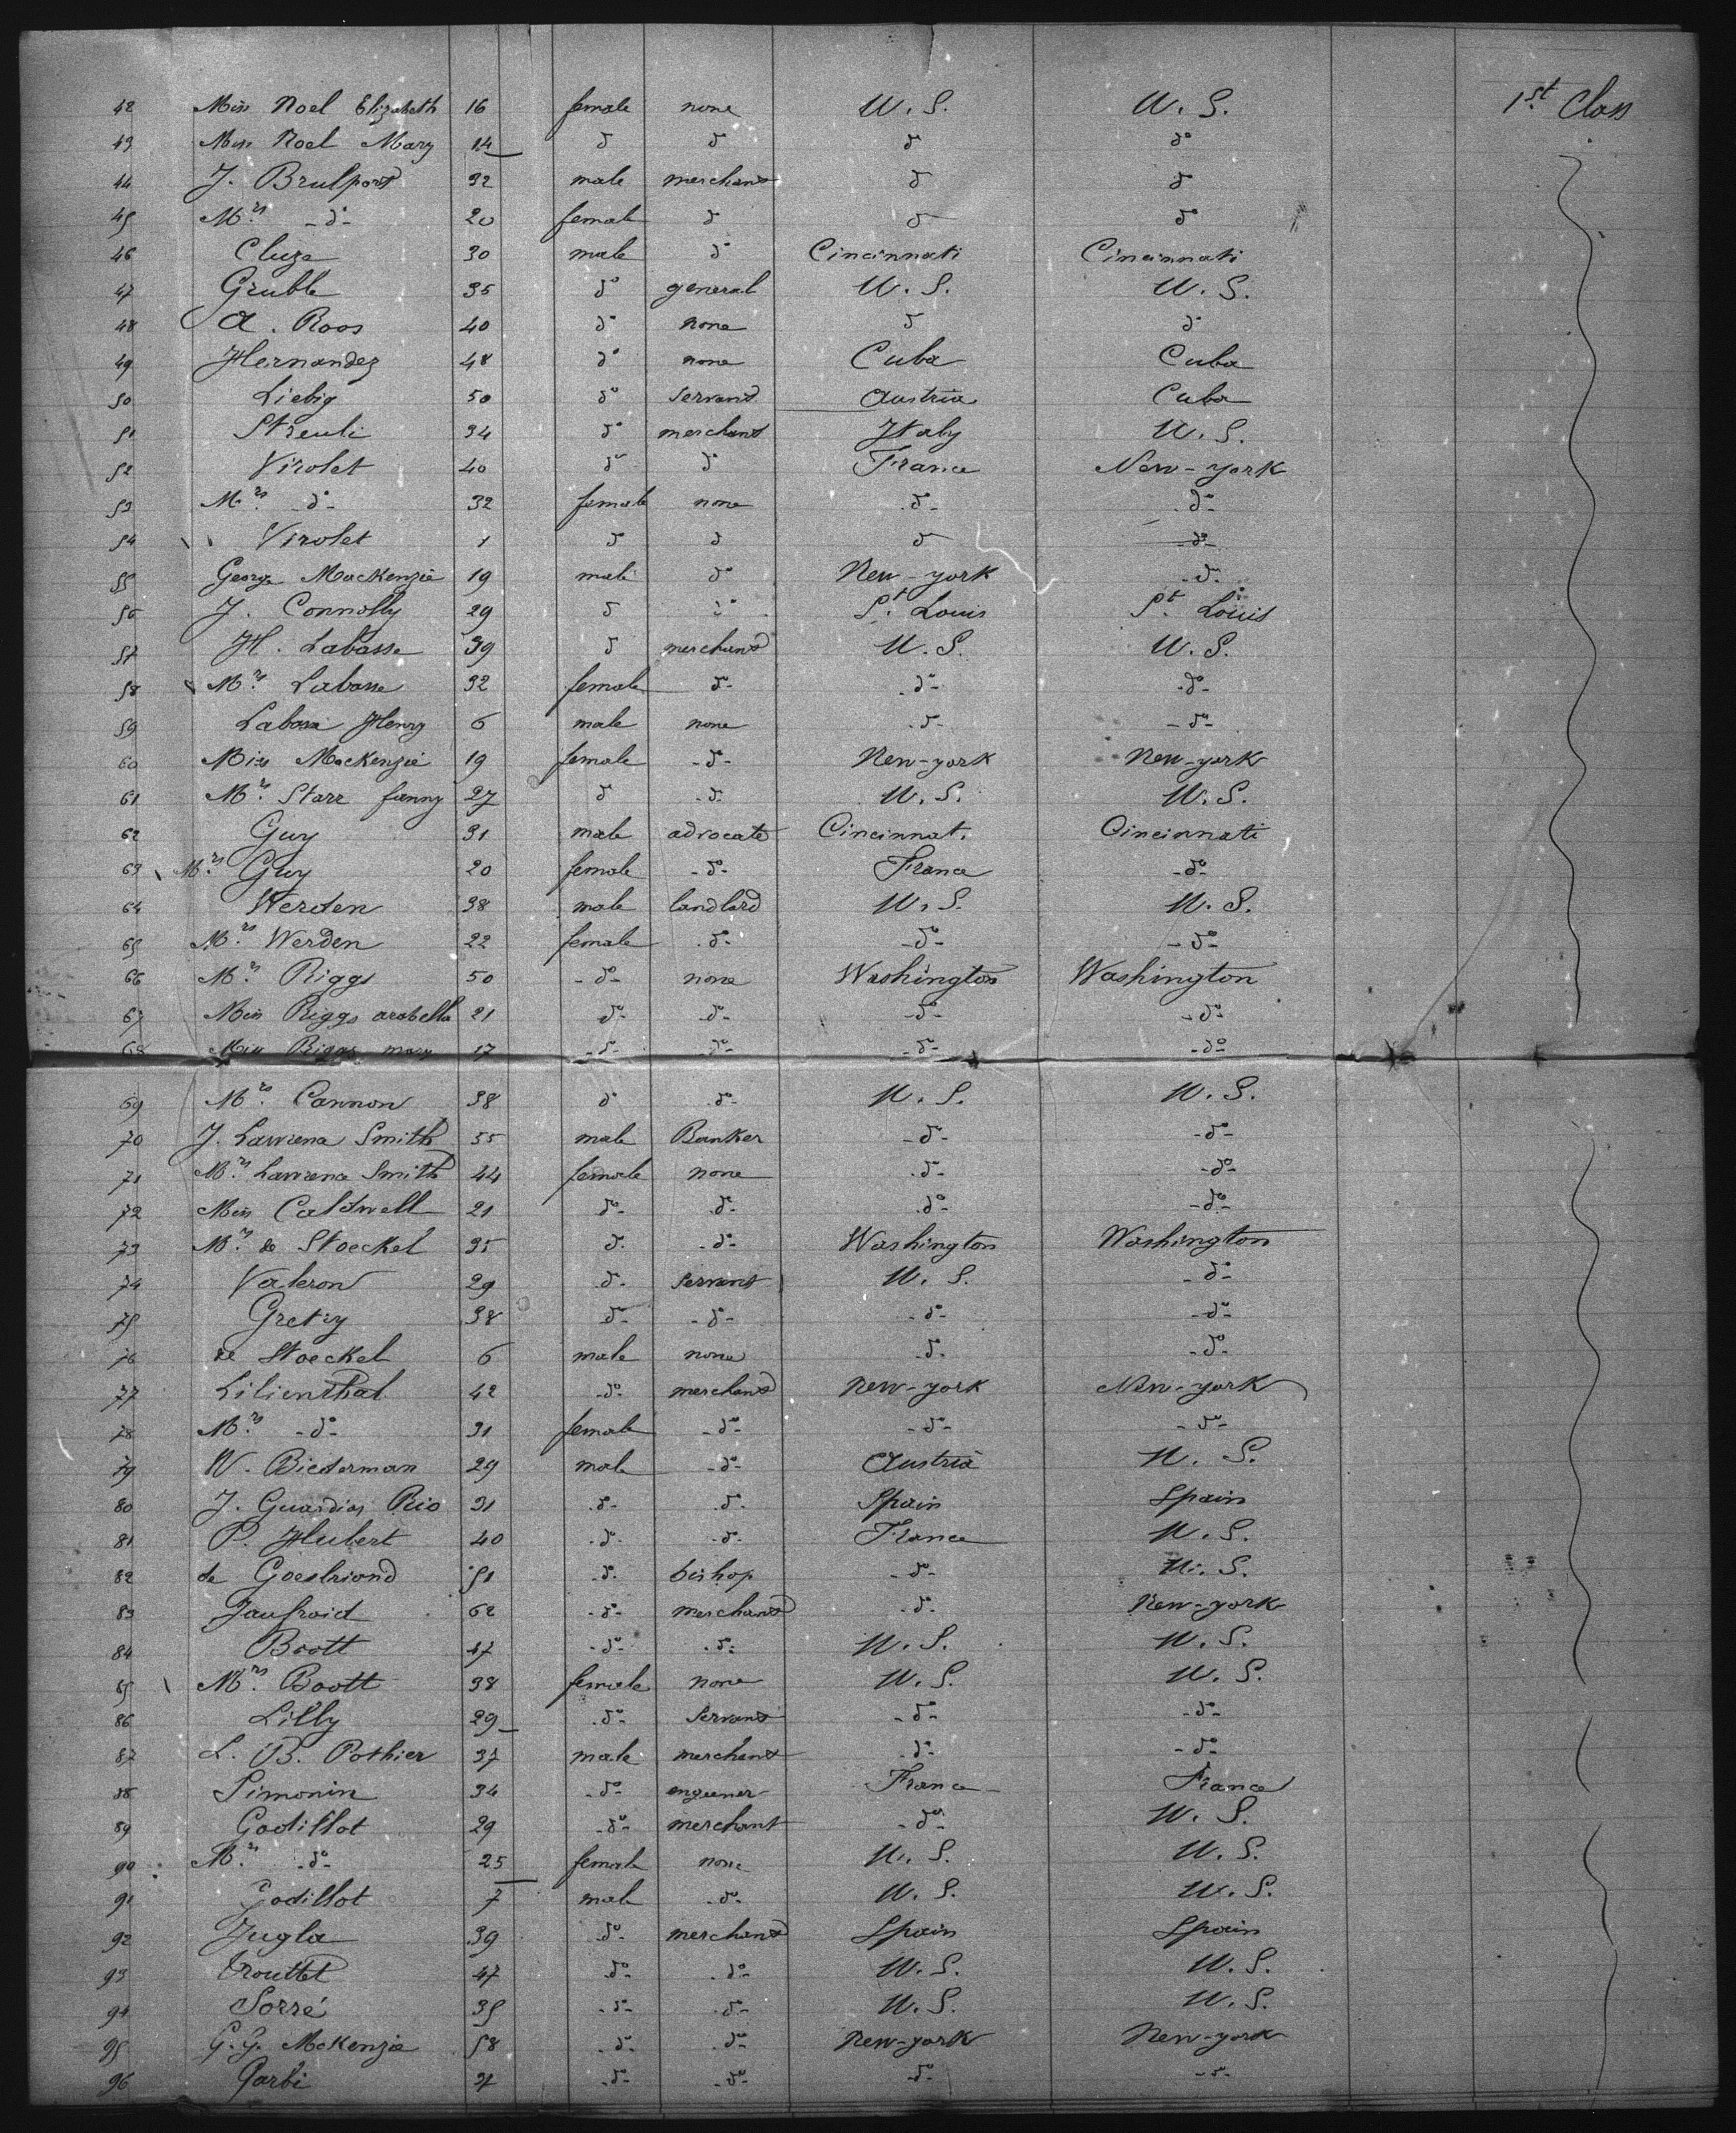 42 Miss Noel Elizabeth 16 female none U. S. U. S. 1st Class
43 Miss Noel Mary 14 do do do do
44 J. Brulport 32 male merchant do do
45 Mrs -do- 20 female do do do
46 Cluze 30 male do Cincinnati Cincinnati
47 Grubb 35 do general U. S. U. S.
48 A. Roos 40 do none do do
49 Hernandez 48 do none Cuba Cuba
50 Liebig 50 do servant Austria Cuba
51 Streuli 34 do merchant Italy U. S.
52 Virolet 40 do do France New-york
53 Mrs -do- 32 female none -do- -do-
54 Virolet 1 do do do -do-
55 George Mackenzie 19 male do New-york -do-
56 J. Connolly 29 do do St. Louis St. Louis
57 H. Labasse 39 do merchant U. S. U. S.
58 Mrs Labasse 32 female do- -do- -do-
59 Labasse Henry 6 male none -do- -do-
60 Miss Mackenzie 19 female -do- New-york New-york
61 Mrs Starr fanny 27 do -do- U. S. U. S.
62 Guy 31 male advocate Cincinnati Cincinnati
63 Mrs Guy 20 female -do- France -do-
64 Werden 38 male landlord U. S. U. S.
65 Mrs Werden 22 female -do- -do- -do-
66 Mrs Riggs 50 -do- none Washington Washington
67 Miss Riggs arabella 21 do- -do- -do- -do-
68 Miss Riggs mary 17 -do- -do- -do- -do-
69 Mrs Cannon 38 do -do- U. S. U. S.
70 J. Lawrence Smith 55 male Banker -do- -do-
71 Mrs Lawrence Smith 44 female none -do- -do-
72 Miss Caldwell 21 do- -do- -do- -do-
73 Mrs de Stoeckel 35 do -do- Washington Washington
74 Valeron 29 do- servant U. S. -do-
75 Gretzy 38 do- -do- -do- -do-
76 de Stoeckel 6 male none -do- -do-
77 Lilienthal 42 -do- merchant New-york New-york
78 Mrs -do- 31 female -do- -do- -do-
79 W. Biederman 29 male -do- Austria U. S.
80 J. Guardias Rio 31 -do- -do- Spain Spain
81 P. Hubert 40 -do- -do- France U. S.
82 de Goesbriand 51 -do- bishop -do- U. S.
83 Jaufroid 62 -do- merchant -do- New-york
84 Boott 47 -do- -do- U. S. U. S.
85 Mrs Boott 38 female none U. S. U. S.
86 Lilly 29 -do- servant -do- -do-
87 L. B. Pothier 37 male merchant -do- -do-
88 Simonin 34 -do- engeener France France
89 Godillot 29 -do- merchant -do- U. S.
90 Mrs -do- 25 female none U. S. U. S.
91 Godillot 7 male -do- U. S. U. S.
92 Jugla 39 -do- merchant Spain Spain
93 Trouttet 47 -do- -do- U. S. U. S.
94 Sorré 35 -do- -do- U. S. U. S.
95 G. G. McKenzie 58 -do- -do- New-york New-york
96 Garbi -do- -do- -do- -do-